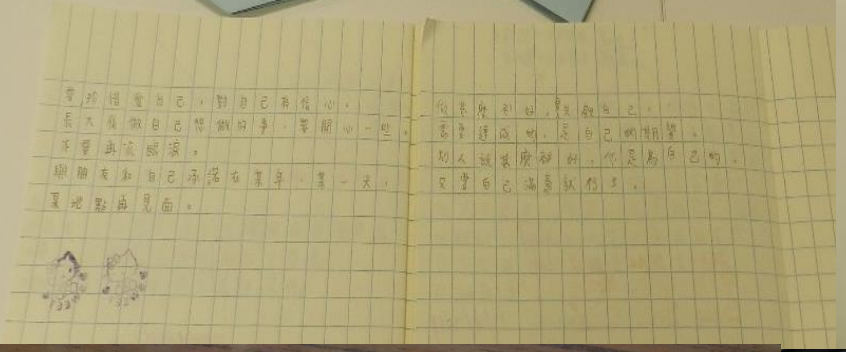 要珍惜愛自己，對自己有信心。
長大後做自己想做的事，要開心一些，
不要再流眼淚。
與朋友和自己承諾在某年，某一天，
某地點再見面。
你甚麼都好，莫失劔自己。
需要達成的，是自己的期望。
別人說甚麼都好，你是為自己的。
只要自己滿意就行了。